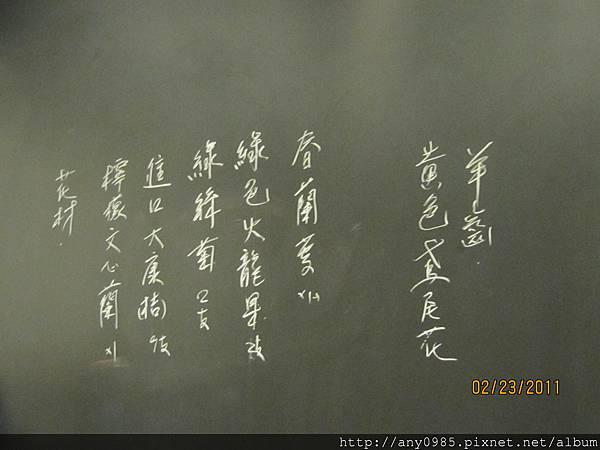 羊齒.
黃色鳶尾花
春蘭葉
綠色火龍果
綠絲菊 2支
進口大康(桔)
檸檬文心蘭
花材.
02/23/2011
http://any0985.pixnet.net/album